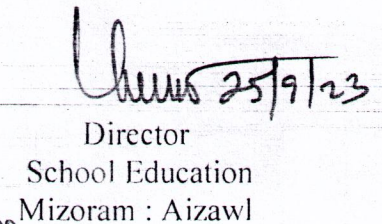 25/9/23
Director
School Education
Mizoram : Aizawl